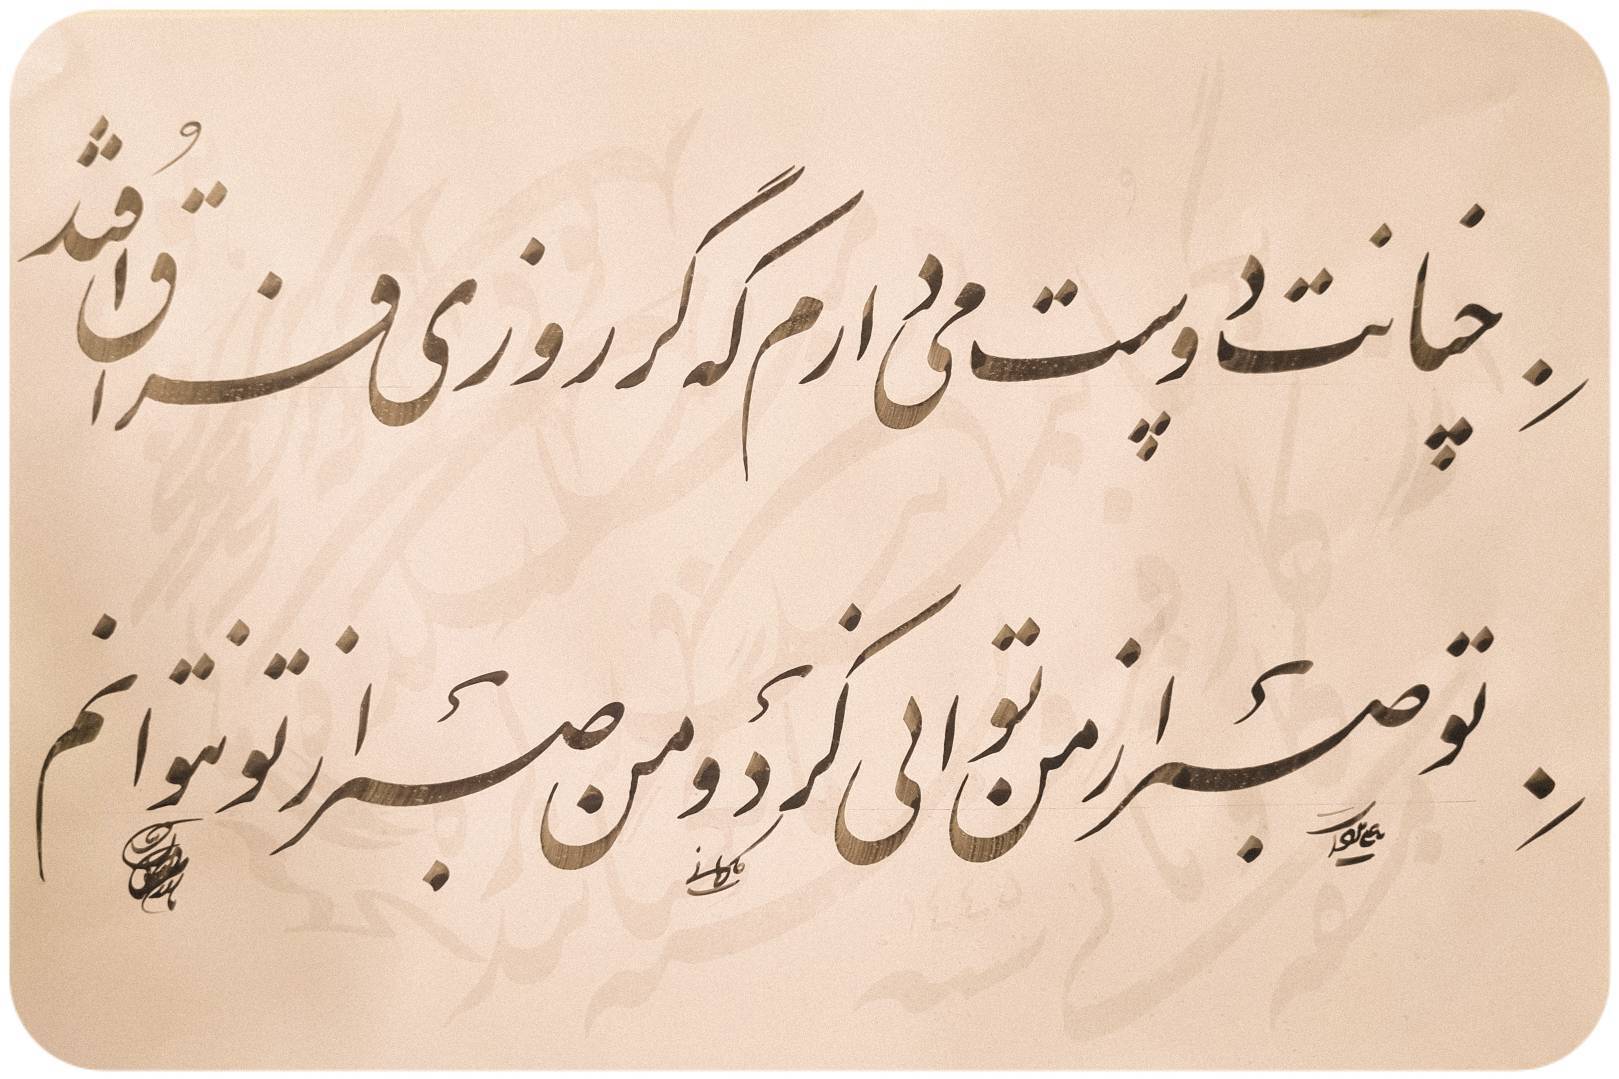 چنانت دوست می دارم که گر روزی فراق افتد
تو صبر از من توانی کرد و من صبر از تو نتوانم